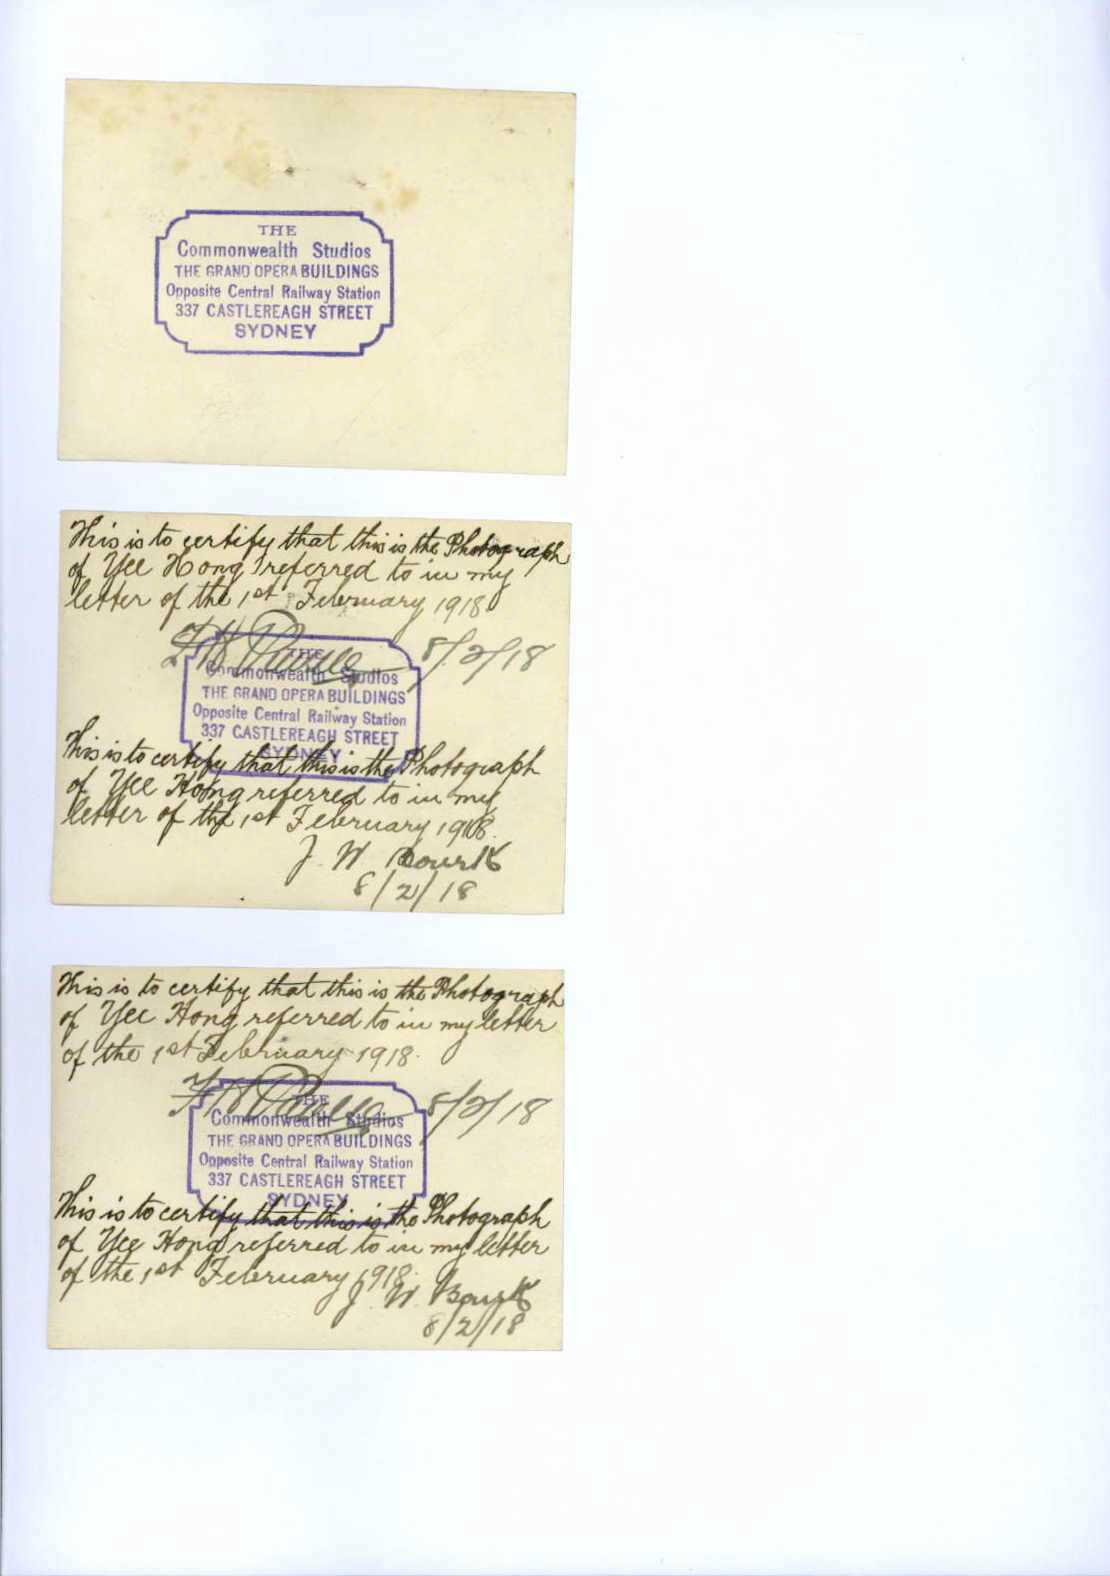 THE
Commonwealth Studios
THE GRAND OPERA BUILDINGS
Opposite Central Railway Station
337 CASTLEREAGH STREET
SYDNEY
This is to certify that this is the Photograph
of Yee Hong referred to in my
letter of the 1st February 1918
8/2/18
THE
Commonwealth Studios
THE GRAND OPERA BUILDINGS
Opposite Central Railway Station
337 CASTLEREAGH STREET
SYDNEY
This is to certify that this is the Photograph
of Yee Hong referred to in my
letter of the 1st February 1918.
J. W. Bourk
8/2/18
This is to certify that this is the Photograph
of Yee Hong referred to in my letter
of the 1st February 1918.
8/2/18
THE
Commonwealth Studios
THE GRAND OPERA BUILDINGS
Opposite Central Railway Station
337 CASTLEREAGH STREET
SYDNEY
This is to certify that this is the Photograph
of Yee Hong referred to in my letter
of the 1st February 1918.
J. W. Bourk
8/2/18